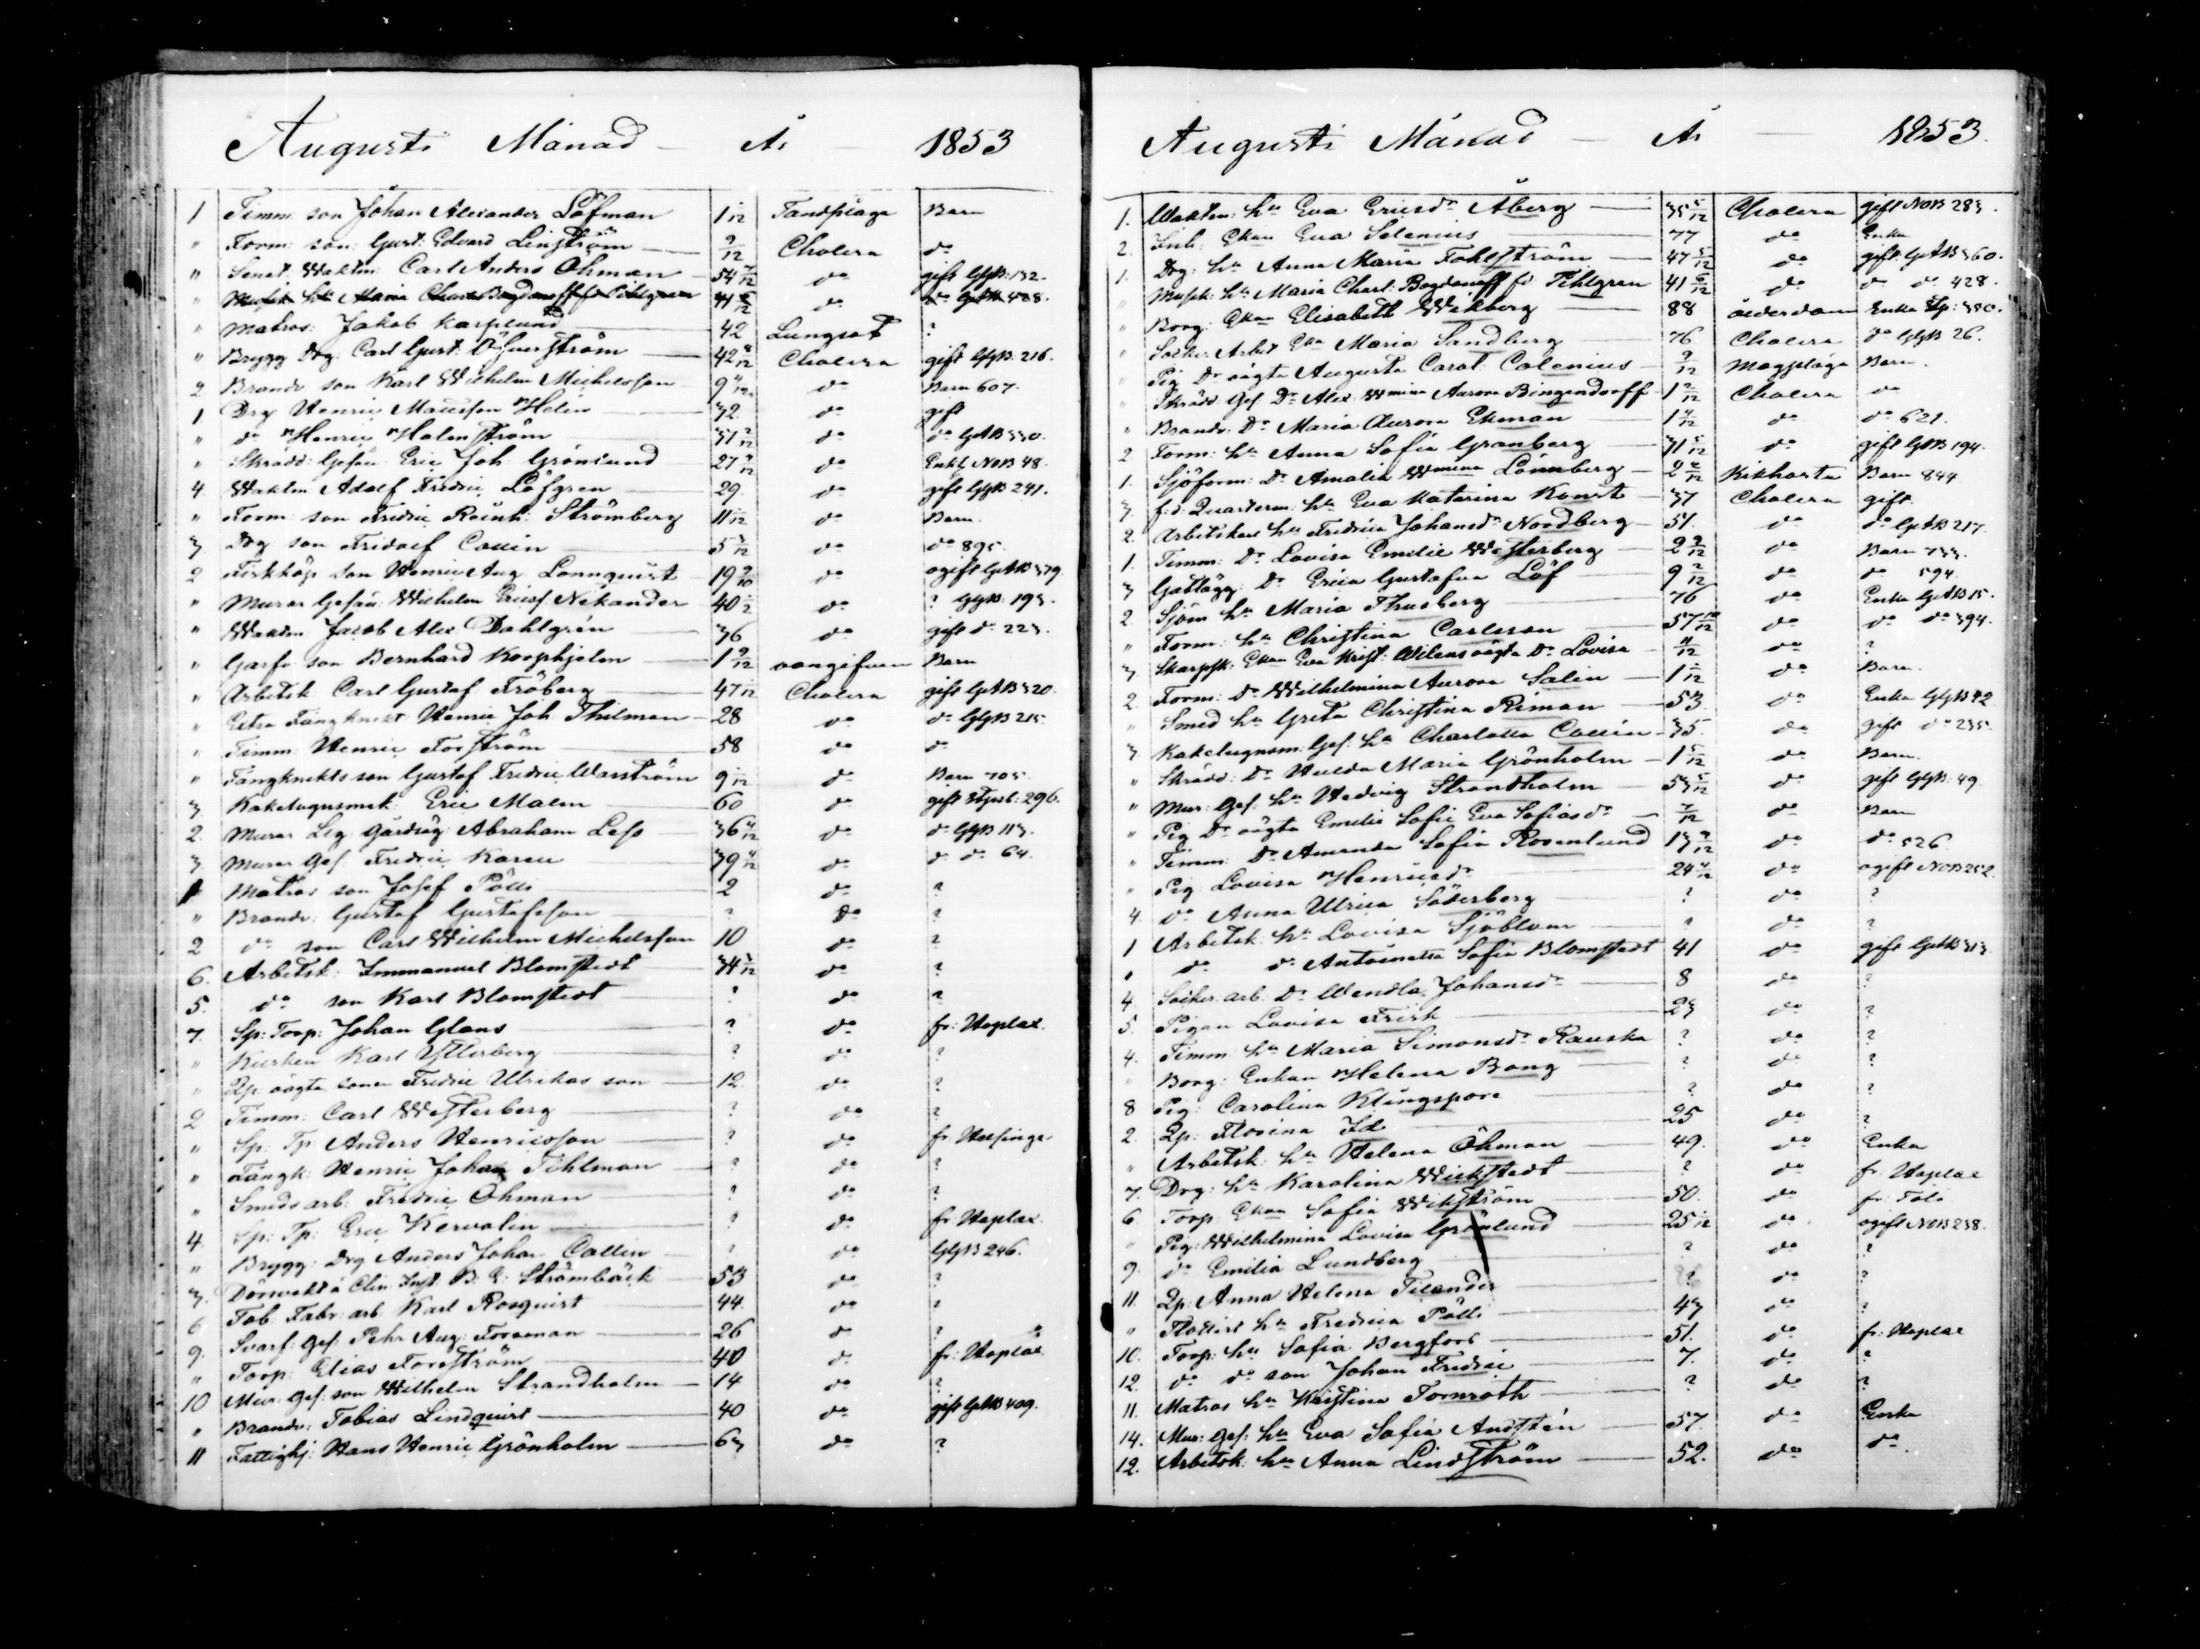 Augusti Månad — År 1853
1 Timm: son Johan Alexander Löfman 1 1/12 Tandplåga Barn
" Form: son: Gust: Edvard Lingström 9/12 Cholera do
" Senat: Waktm: Carl Anders Öhman 54 7/12 do gift GGB: 132.
" Musik: hu Maria 41 6/12 do do 428.
" Matros: Jakob Karplund 42 Lungsot ?
" Brygg Drg: Carl Gust: Öfverström 42 8/12 Cholera gift GGB: 216.
2 Brandv: son Karl Wilhelm Michelsson 9 4/12 do Barn 607.
1 Drg Henric Matisson Helin 32. do gift
" do Henric Holmström 37 2/12 do do GAB 330.
" Skrädd: Gesäll: Eric Joh: Grönlund 27 do Enkl. NoB 48.
4. Waktm Adolf Fredric Löfgren 29. do gift GGB 241.
" Form: son Fredric Reinh: Strömberg 11 1/12 do Barn.
3 Drg son Fridolf Collin 5 3/12 do do 895.
2 Fiskköp: son Henric Aug: Lönnquist 19 9/10 do ogift GAB 379
" Murar Gesäll: Wilhelm Ericss: Nikander 40 1/2 do ? GGB: 193.
" Waktm: Jacob Alex: Dahlgrén 36 do gift do 223.
" Garfv: son Bernhard Korphjelm 1 9/12 oangifven Barn
" Arbetsk: Carl Gustaf Fröberg 47 1/12 Cholera gift GAB 320.
" Extra Fångknekt Henric Joh: Thilman 28 do do GGB 215.
" Timm: Henric Forström 58 do do
" Fångknekts son Gustaf Fredric Warström 9 1/12 do Barn 705.
3 Kakelugnsmak: Eric Malm 60 do gift 296.
2. Murar Lrg: Gårdsäg: Abraham 36 4/12 do do GGB 113.
3. Murar Gesl: Fredric Karen 39 4/12 do do do 64.
1 Matros son Josef Pölli 2 do ?
" Brandv: Gustaf Gustafsson ? do ?
2 do son Carl Wilhelm Michelsson 10 do ?
6. Arbetsk: Immanuel Blomstedt 34 3/12 do ?
5. do son Karl Blomstedt ? do ?
7. Sp: Torp: Johan Glans ? do fr: Hoplax.
" Karl Ytterberg ? do ?
" Qp: oägta sonen Fredric Ulrikas son 12. do ?
2 Timm: Carl Westerberg ? do ?
" Sp: Tp: Anders Henricsson ? do fr: Helsinge
" Fångk: Henric Johan Tihlman ? do ?
" Smids arb: Fredric Öhman ? do ?
4. Sp: Tp: Eric Kervolin ? do fr: Hoplax.
" Brygg: Drg Anders Johan Collin ? do GGB 246.
3. Dörrvakt å Clin: Inst: B: E: Strömbäck 53 do ?
6 Tob: Fabr: arb: Karl Rosquist 44. do ?
9. Svarf: Ges: Pehr Aug: Forsman 26 do ?
" Torp: Elias Forsström 40 do fr: Hoplax.
10 Mur: Ges: son Wilhelm Strandholm 14 do ?
" Brandv: Tobias Lindquist 40 do gift GAB 409.
11 Fattighj: Hans Henric Grönholm 63 do ?
Augusti Månad — År — 1853.
1. Waktm: hu Eva Ericsdr Åberg 35 5/12 Cholera gift NoB 283.
2. Enh: Ekan Eva Selenius 77 do Enka
1. Drg: hu Anna Maria Fohlström 47 5/12 do gift GAB 360.
" Musik: hu Maria Charl: Bogdanoff fd Pihlgren 41 6/12 do do do 428.
" Borg: Ekan Elisabeth Wikberg 88 ålderdom Enka 350.
" Socker: Arbet Eka Maria Sandberg 76 Cholera do GGB 26.
" Pig: Dr oägta Augusta Carol: Colenius 9/12 Magplåga Barn.
" Skrädd: Ges: Dr Alex: Wmina Aurora Bingendorff 1 2/12 Cholera do
" Brandv: Dr Maria Aurora Ekman 1 4/12 do do 621.
2 Form: hu Anna Sofia Granberg 31 5/12 do gift GAB 194.
1. Sjöform: Dr Amalia Wmina Lönnberg 2 2/12 Kikhosta Barn 844
3. f:d: Quarterm: hu Eva Katarina Konst 37 Cholera gift.
2. Arbetskarl hu Fredrica Johansdr Nordberg 51. do do GAB 217.
1. Timm: Dr Lovisa Emilie Westerberg 2 9/12 do Barn 733.
3 Dr Erica Gustafva Löf 9 2/12 do do 594.
2. Sjöm: hu Maria Thusberg 76 do Enka GAB 15.
" Form: hu Christina Carlsson 57 10/12 do do do 394.
3 Skarpsk: Ekan Eva Krist: Wilens oägta Dr Lovisa 11/12 do ?
2. Form: Dr Wilhelmina Aurora Salin 1 1/12 do Barn.
" Smed hu Greta Christina Riman 53. do Enka GGB 42
3 Kakelugnsm: Ges: hu Charlotta Collin 35. do gift do 235.
" Skrädd: Dr Hulda Maria Grönholm 1 5/12 do Barn.
" Mur: Ges: hu Hedvig Strandholm 53 5/12 do gift GGB: 49.
" Pig: Dr oägta Emilie Sofie Eva Sofiasdr 7/12 do Barn
" Timm: Dr Amanda Sofia Rosenlund 13 9/12 do do 526
" Pig: Lovisa Henricsdr 24 4/12 do ogift NoB 252.
4. do Anna Ulrica Söderberg ? do ?
1 Arbetsk: hu Lovisa Sjöblom ? do ?
" do do Antoinetta Sofia Blomstedt 41 do gift GAB 313.
4. Socker: arb: Dr Wendla Johansdr 8 do ?
5. Pigan Lovisa Frisk 23 do ?
4. Timm: hu Maria Simonsdr Rauska ? do ?
" Borg: Enkan Helena Bong ? do ?
8 Pig: Carolina Klingspore ? do ?
2. Qp: Florina Id 25 do ?
" Arbetsk: hu Helena Öhman 49. do Enka
7. Drg: hu Karolina Wickstedt ? do fr: Hoplax
6. Torp: Ekan Sofia Wikström 50. do fr: Tölö
" Pig: Wilhelmina Lovisa Grönlund 25 1/12 do ogift NoB 238.
9. do Emilia Lundberg ? do ?
11. Qp: Anna Helena Tilander ? do ?
" hu Fredrica Pölli 47 do ?
10. Torp: hu Sofia Bergfors 51. do fr: Hoplax
12. do do son Johan Fredric 7. do ?
11. Matros hu Kristina Tornroth ? do ?
14. Mur: Ges: hu Eva Sofia Andstén 57. do Enka
12. Arbetsk: hu Anna Lindström 52. do do.